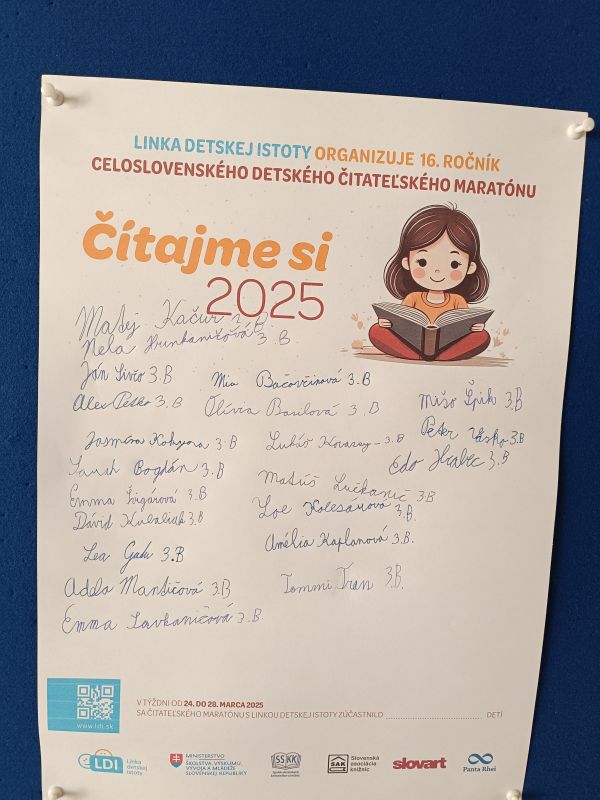 LINKA DETSKEJ ISTOTY ORGANIZUJE 16. ROČNÍK
CELOSLOVENSKÉHO DETSKÉHO ČITATEĽSKÉHO MARATÓNU
Čítajme si
2025
Matej Kačur 3.B
Nela 3.B
Ján 3.B
Mia Bačovčinová 3.B
Alex Peško 3.B
Olívia Basilová 3.B
Mišo Špik 3.B
Peter 3.B
Jasmína 3.B
Lukáš 3.B
Edo Hrabec 3.B
Bogdán 3.B
Matúš Lučkanič 3.B
Emma 3.B
Zoe Kolesárová 3.B.
Dávid 3.B
Amélia Kaplanová 3.B.
Lea 3.B
Adela Mantičová 3.B
Tommi Tran 3.B.
Emma Lavkaničová 3.B.
www.ldi.sk
V TÝŽDNI OD 24. DO 28. MARCA 2025
SA ČITATEĽSKÉHO MARATÓNU S LINKOU DETSKEJ ISTOTY ZÚČASTNILO DETÍ
LDI
Linka
detskej
istoty
MINISTERSTVO
ŠKOLSTVA, VÝSKUMU,
VÝVOJA A MLÁDEŽE
SLOVENSKEJ REPUBLIKY
SSKK
SAK
Slovenská
asociácia
knižníc
slovart
Panta Rhei